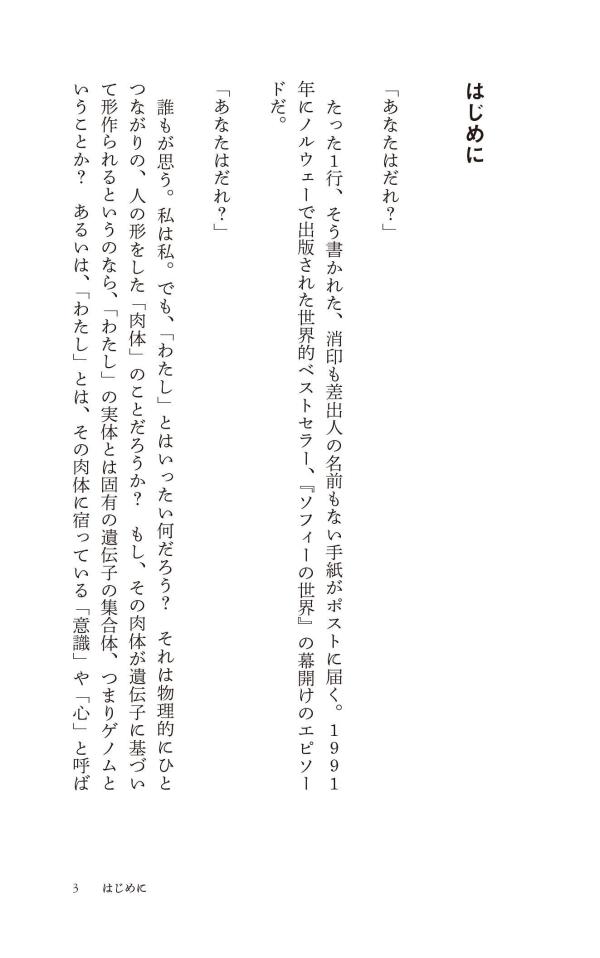 はじめに
「あなたはだれ？」
たった１行、そう書かれた、消印も差出人の名前もない手紙がポストに届く。１９９１
年にノルウェーで出版された世界的ベストセラー、『ソフィーの世界』の幕開けのエピソー
ドだ。
「あなたはだれ？」
誰もが思う。私は私。でも、「わたし」とはいったい何だろう？　それは物理的にひと
つながりの、人の形をした「肉体」のことだろうか？　もし、その肉体が遺伝子に基づい
て形作られるというのなら、「わたし」の実体とは固有の遺伝子の集合体、つまりゲノムと
いうことか？　あるいは、「わたし」とは、その肉体に宿っている「意識」や「心」と呼ば
3　はじめに